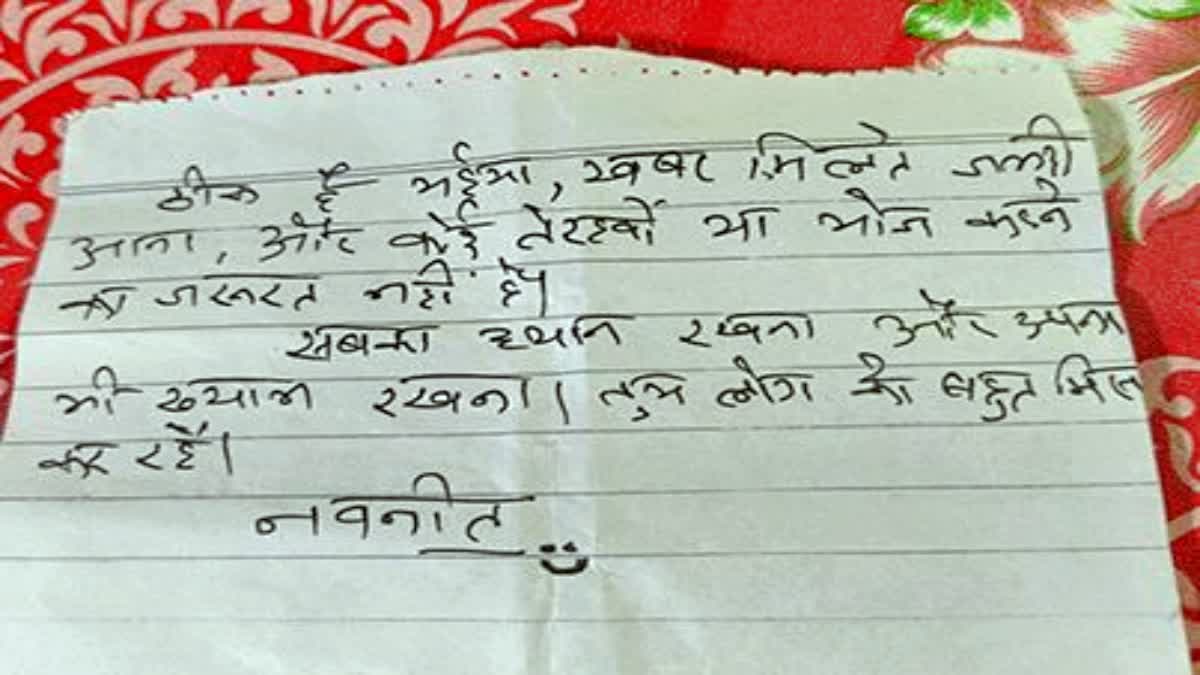 ठीक है भईया, खबर मिलते जल्दी
आना, और कोई तेरहवीं या भोज करने
का जरूरत नहीं है।
सबका ध्यान रखना और अपना
भी ख्याल रखना। तुम लोग को बहुत मिल
कर रहें।
नवनीत